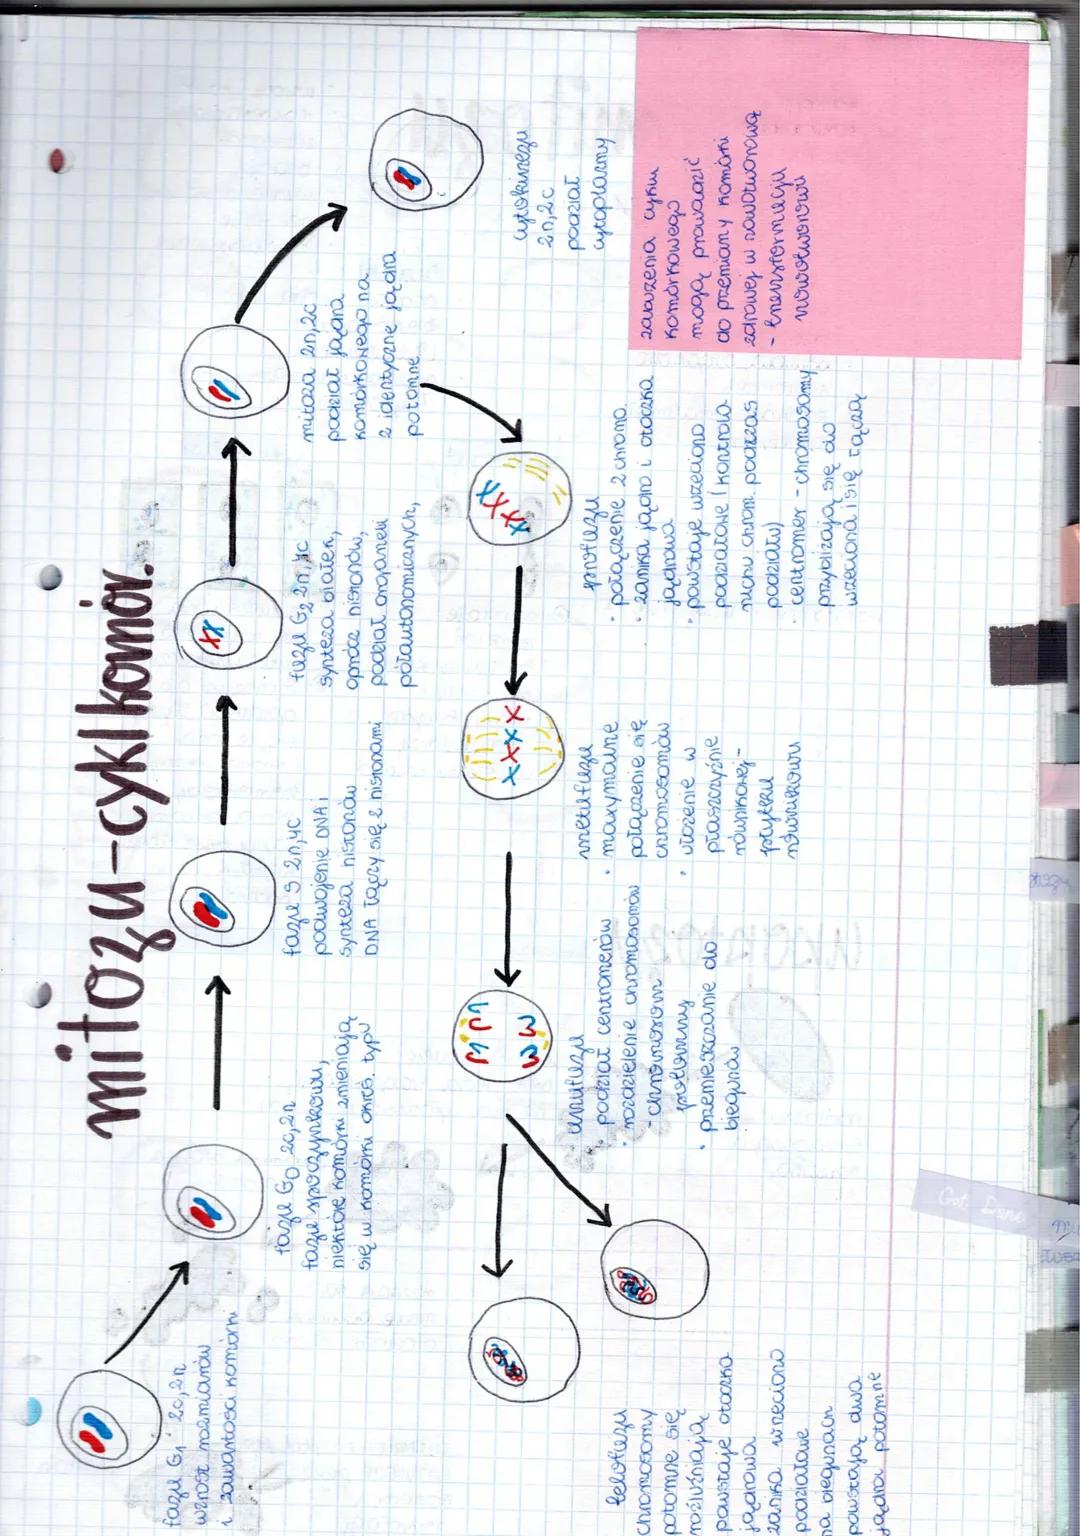 mitoza-cykl komór.
faza G₁ 2c, 2n
wzrost rozmiarów
i zawartości komórki
faza G0 2c, 2n
faza spoczynkowa,
niektóre komórki zmieniają
się w komórki okreś. typ
faza S 2n, 4c
podwojenie DNA i
synteza histonów
DNA łączy się z histonami
faza G₂ 2n, 4c
synteza białek,
oprócz histonów,
podział organelli
półautonomicznych,
mitoza 2n, 2c
podział jądra
komórkowego na
2 identyczne jądra
potomne
cytokineza
2n, 2c
podział
cytoplazmy
profaza
• połączenie 2 chromo.
• zanika jądro i otoczka
jądrowa
• powstaje wrzeciono
podziałowe (kontrola
ruchu chrom. podczas
podziału)
• centromer - chromosomy
przybliżają się do
wrzeciona i się łączą
metafaza
• maxymalne
połączenie się
chromosomów
• ułożenie w
płaszczyźnie
równikowej -
płytka
równikowa
anafaza
• podział centromerów
• rozdzielenie chromosomów
- chromosom
potomny
• przemieszczanie do
biegunów
telofaza
chromosomy
potomne się
rozluźniają
powstaje otoczka
jądrowa
zanika wrzeciono
podziałowe
na biegunach
powstają dwa
jądra potomne
zaburzenia cyklu
komórkowego
mogą prowadzić
do przemiany komórki
zdrowej w nowotworową
- transformacja
nowotworowa